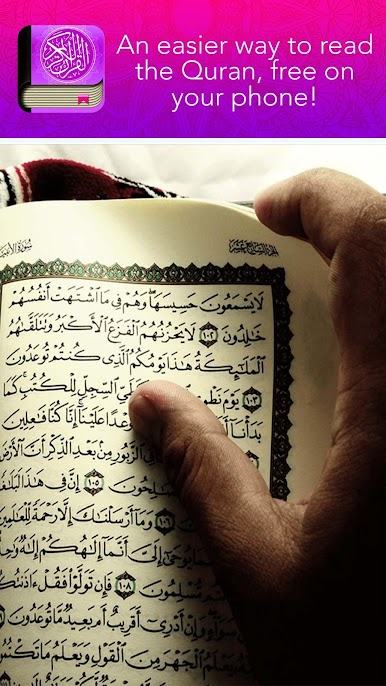 An easier way to read
the Quran, free on
your phone!
الجزء السابع عشر
سورة
لَا يَسْمَعُونَ حَسِيسَهَا وَهُمْ فِى مَا ٱشْتَهَتْ أَنفُسُهُمْ
خَٰلِدُونَ ١٠٢ لَا يَحْزُنُهُمُ ٱلْفَزَعُ ٱلْأَكْبَرُ وَتَتَلَقَّىٰهُمُ
ٱلْمَلَٰٓئِكَةُ هَٰذَا يَوْمُكُمُ ٱلَّذِى كُنتُمْ تُوعَدُونَ
١٠٣ يَوْمَ نَطْوِى ٱلسِّجِلِّ لِلْكُتُبِ كَمَا
بَدَأْنَآ وَعْدًا عَلَيْنَآ إِنَّا كُنَّا فَٰعِلِينَ
فِى ٱلزَّبُورِ مِنۢ بَعْدِ ٱلذِّكْرِ أَنَّ ٱلْأَرْضَ
ٱلصَّٰلِحُونَ ١٠٥ إِنَّ فِى هَٰذَا
وَمَآ أَرْسَلْنَٰكَ إِلَّا رَحْمَةً لِّلْعَٰلَمِينَ
يُوحَىٰٓ إِلَىَّ أَنَّمَآ إِلَٰهُكُمْ إِلَٰهٌ
مُّسْلِمُونَ ١٠٨ فَإِن تَوَلَّوْا۟ فَقُلْ
سَوَآءٍ وَإِنْ أَدْرِىٓ أَقَرِيبٌ أَم بَعِيدٌ مَّا تُوعَدُونَ
يَعْلَمُ ٱلْجَهْرَ مِنَ ٱلْقَوْلِ وَيَعْلَمُ مَا